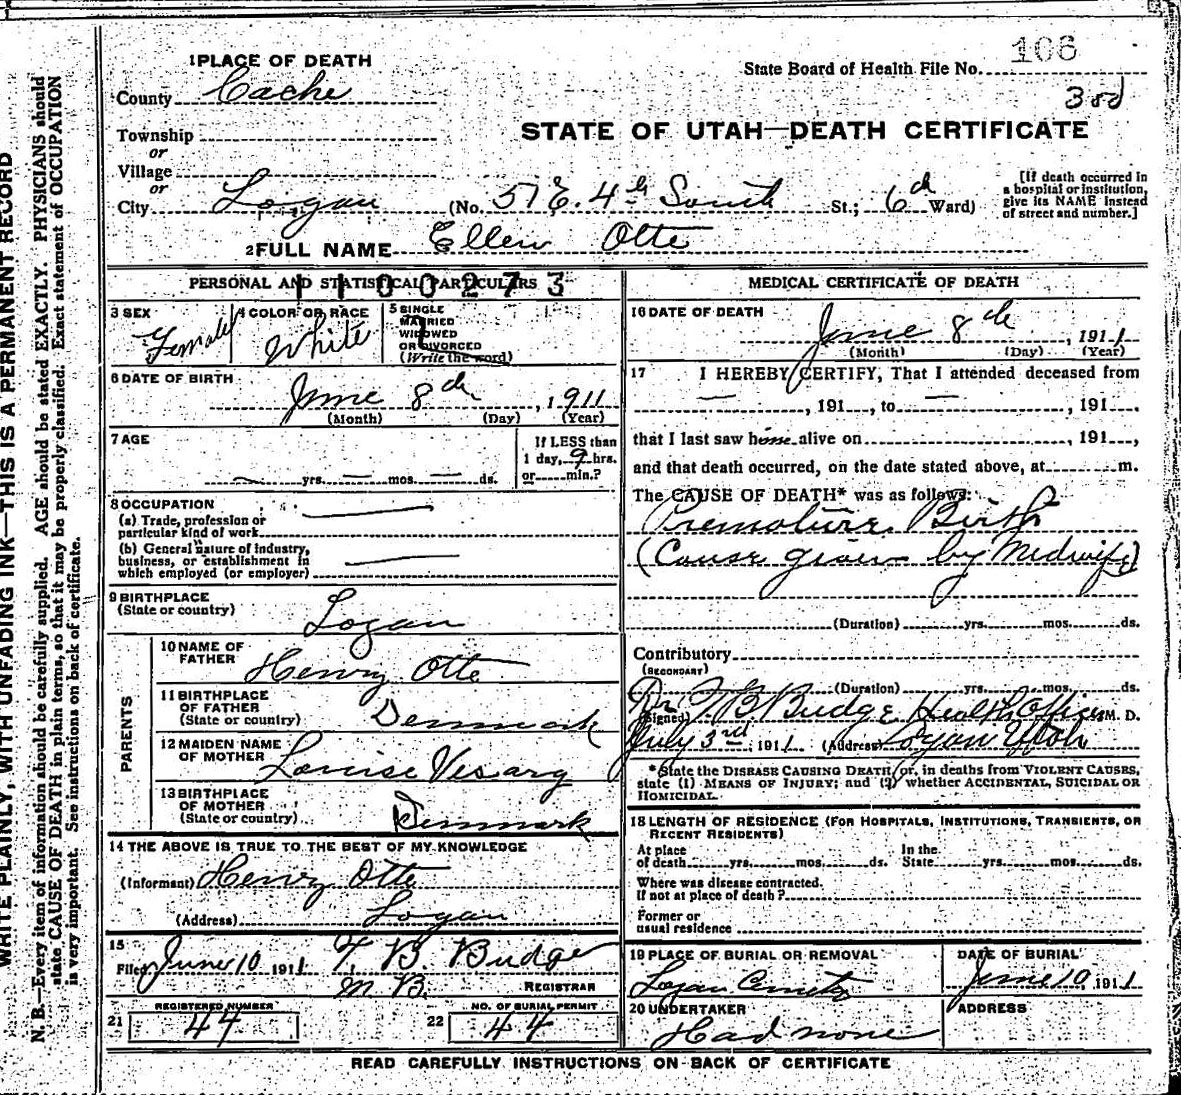 106
1 PLACE OF DEATH
State Board of Health File No.
County Cache
3rd
Township
STATE OF UTAH—DEATH CERTIFICATE
or
Village
or
City Logan (No. 51 E. 4th South St.; 6th Ward)
[If death occurred in a hospital or institution, give its NAME instead of street and number.]
2 FULL NAME Ellen Otte
PERSONAL AND STATISTICAL PARTICULARS
1100273
3 SEX Female
4 COLOR OR RACE White
5 SINGLE
MARRIED
WIDOWED
OR DIVORCED
(Write the word)
6 DATE OF BIRTH
June 8th, 1911
(Month) (Day) (Year)
7 AGE
yrs. mos. ds.
If LESS than
1 day, 9 hrs.
or min.?
8 OCCUPATION
(a) Trade, profession or
particular kind of work
(b) General nature of industry,
business, or establishment in
which employed (or employer)
9 BIRTHPLACE
(State or country)
Logan
PARENTS
10 NAME OF
FATHER Henry Otte
11 BIRTHPLACE
OF FATHER
(State or country) Denmark
12 MAIDEN NAME
OF MOTHER Louise
13 BIRTHPLACE
OF MOTHER
(State or country) Denmark
14 THE ABOVE IS TRUE TO THE BEST OF MY KNOWLEDGE
(Informant) Henry Otte
(Address) Logan
15
Filed June 10 1911 T. B. Budge
REGISTRAR
REGISTERED NUMBER
21 44
NO. OF BURIAL PERMIT
22 44
MEDICAL CERTIFICATE OF DEATH
16 DATE OF DEATH
June 8th, 1911
(Month) (Day) (Year)
17 I HEREBY CERTIFY, That I attended deceased from
— , 191 , to — , 191 .
that I last saw h alive on , 191 ,
and that death occurred, on the date stated above, at m.
The CAUSE OF DEATH* was as follows:
Premature Birth
(Cause given by Midwife)
(Duration) yrs. mos. ds.
Contributory
(SECONDARY)
(Duration) yrs. mos. ds.
(Signed) Dr T B Budge Health Officer M. D.
July 3rd, 1911 (Address) Logan Utah
*State the DISEASE CAUSING DEATH, or, in deaths from VIOLENT CAUSES,
state (1) MEANS OF INJURY; and (2) whether ACCIDENTAL, SUICIDAL OR
HOMICIDAL.
18 LENGTH OF RESIDENCE (FOR HOSPITALS, INSTITUTIONS, TRANSIENTS, OR
RECENT RESIDENTS)
At place In the
of death yrs. mos. ds. State yrs. mos. ds.
Where was disease contracted.
If not at place of death?
Former or
usual residence
19 PLACE OF BURIAL OR REMOVAL
DATE OF BURIAL
June 10, 1911
20 UNDERTAKER
ADDRESS
Had none
READ CAREFULLY INSTRUCTIONS ON BACK OF CERTIFICATE
WRITE PLAINLY, WITH UNFADING INK—THIS IS A PERMANENT RECORD
N. B.—Every item of information should be carefully supplied. AGE should be stated EXACTLY. PHYSICIANS should
state CAUSE OF DEATH in plain terms, so that it may be properly classified. Exact statement of OCCUPATION
is very important. See instructions on back of certificate.